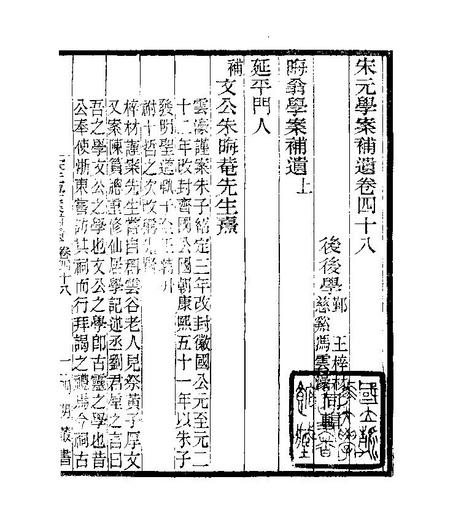 宋元學案補遺卷四十八
後學 鄞 王梓材
慈谿馮雲濠 同輯
晦翁學案補遺上
延平門人
補 文公朱晦菴先生熹
雲濠謹案朱子紹定三年改封徽國公元至元二
十二年改封齊國公國朝康熙五十一年以朱子
發明聖道
附十哲之次改稱先賢
梓材謹案先生嘗自稱雲谷老人見祭黃子厚文
又案陳賞總重修仙居學記述丞劉君厔之言曰
吾之學文公之學也文公之學卽古靈之學也昔
公奉使浙東嘗訪其祠而行拜謁之禮焉今祠古
卷四十八 一 四明叢書